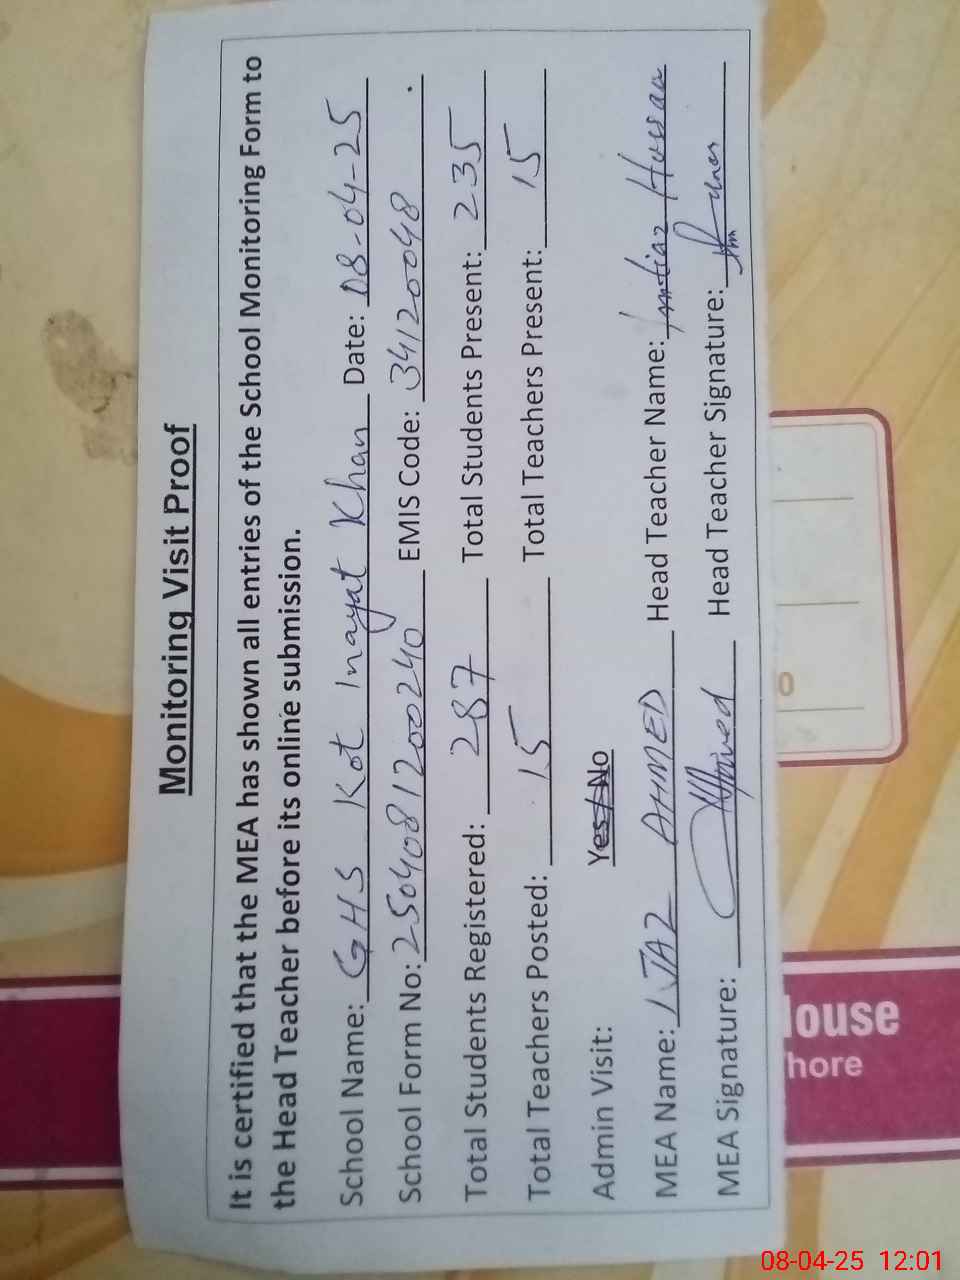 Monitoring Visit Proof
It is certified that the MEA has shown all entries of the School Monitoring Form to
the Head Teacher before its online submission.
School Name: GHS Kot Inayat Khan Date: 08-04-25
School Form No: 250408120024 0 EMIS Code: 34120048
Total Students Registered: 287 Total Students Present: 235
Total Teachers Posted: 15 Total Teachers Present: 15
Admin Visit: Yes/No
MEA Name: IJAZ AHMED Head Teacher Name: Imtiaz Hussan
MEA Signature: Head Teacher Signature:
0
House
hore
08-04-25 12:01